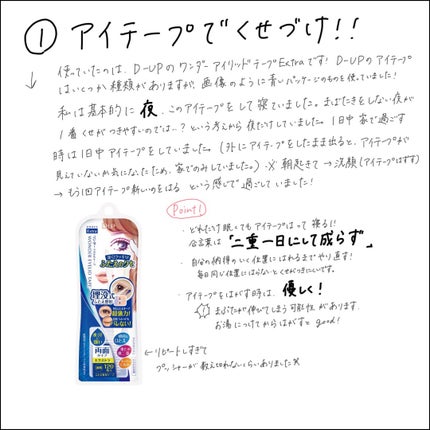 ① アイテープでくせづけ!!
↓ 使っていたのは、D-UPのワンダーアイリッドテープExtraです! D-UPのアイテープ
はいくつか種類がありますが、画像のように青いパッケージのものを使っていました!
私は基本的に夜、このアイテープをして寝ていました。まばたきをしない夜が
1番くせがつきやすいのでは…?という考えから夜だけしていました。1日中家で過ごす
時は1日中アイテープをしていました。(外にアイテープをしたまま出ると、アイテープが
見えていないか気になったため、家でのみしていました。) ※ 朝起きて→洗顔(アイテープはずす)
→もう1回アイテープ新しいのをはる という感じで過ごしていました!
Point!
・どれだけ眠くてもアイテープはって寝る!!
合言葉は「二重一日にして成らず」
・自分の納得のいく位置にはれるまでやり直す!
毎日同じ位置にはらないとくせがつきにくいです。
・アイテープをはがす時は、優しく!
まぶたが伸びてしまう可能性があります。
お湯につけてからはがすと good!
WONDER EYELID TAPE
埋没式
両面
120
←リピートしすぎて
プッシャーが数えきれないくらいありました